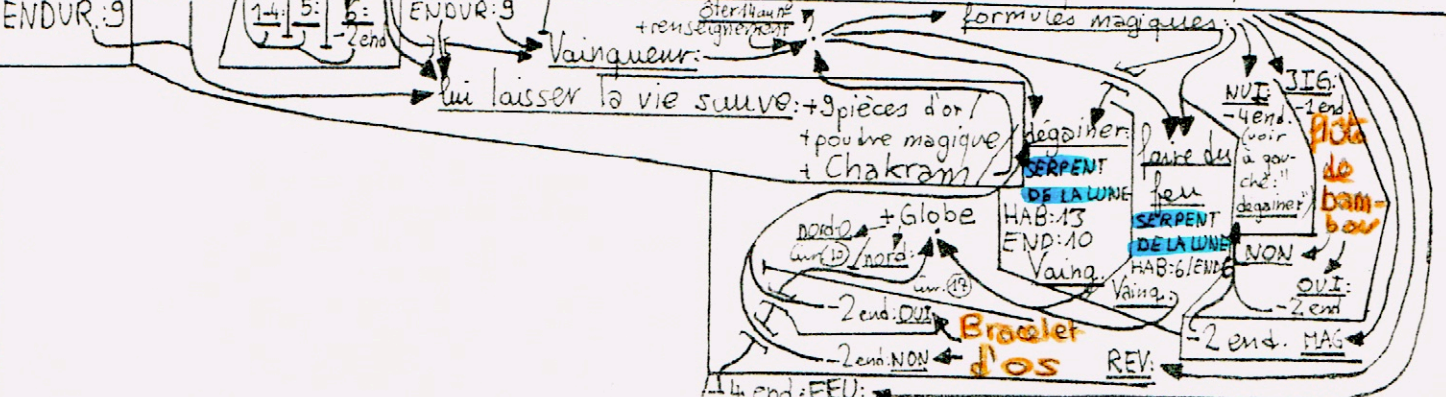 ENDUR:9
1-4: 5: 6:
-2end
ENDUR:9
Vainqueur:
ôter 14 au n°
+renseignement
?
formules magiques:
lui laisser la vie sauve: +9pièces d'or/
+poudre magique/
+ Chakram/
dégainer:
SERPENT
DE LA LUNE
HAB:13
END:10
Vainq.
faire du
feu
SERPENT
DE LA LUNE
HAB:6/END:6
Vainq.
NUI:
-4end.
(voir
à gau-
che:"
degainer")
JIG:
-1end.
flûte
de
bam-
bou
NON
OUI:
-2end
+Globe
nord-o
/nord:
-2end:OUI
-2end:NON
Bracelet
d'os
REV:
-2 end. MAG
-4 end:FEU: